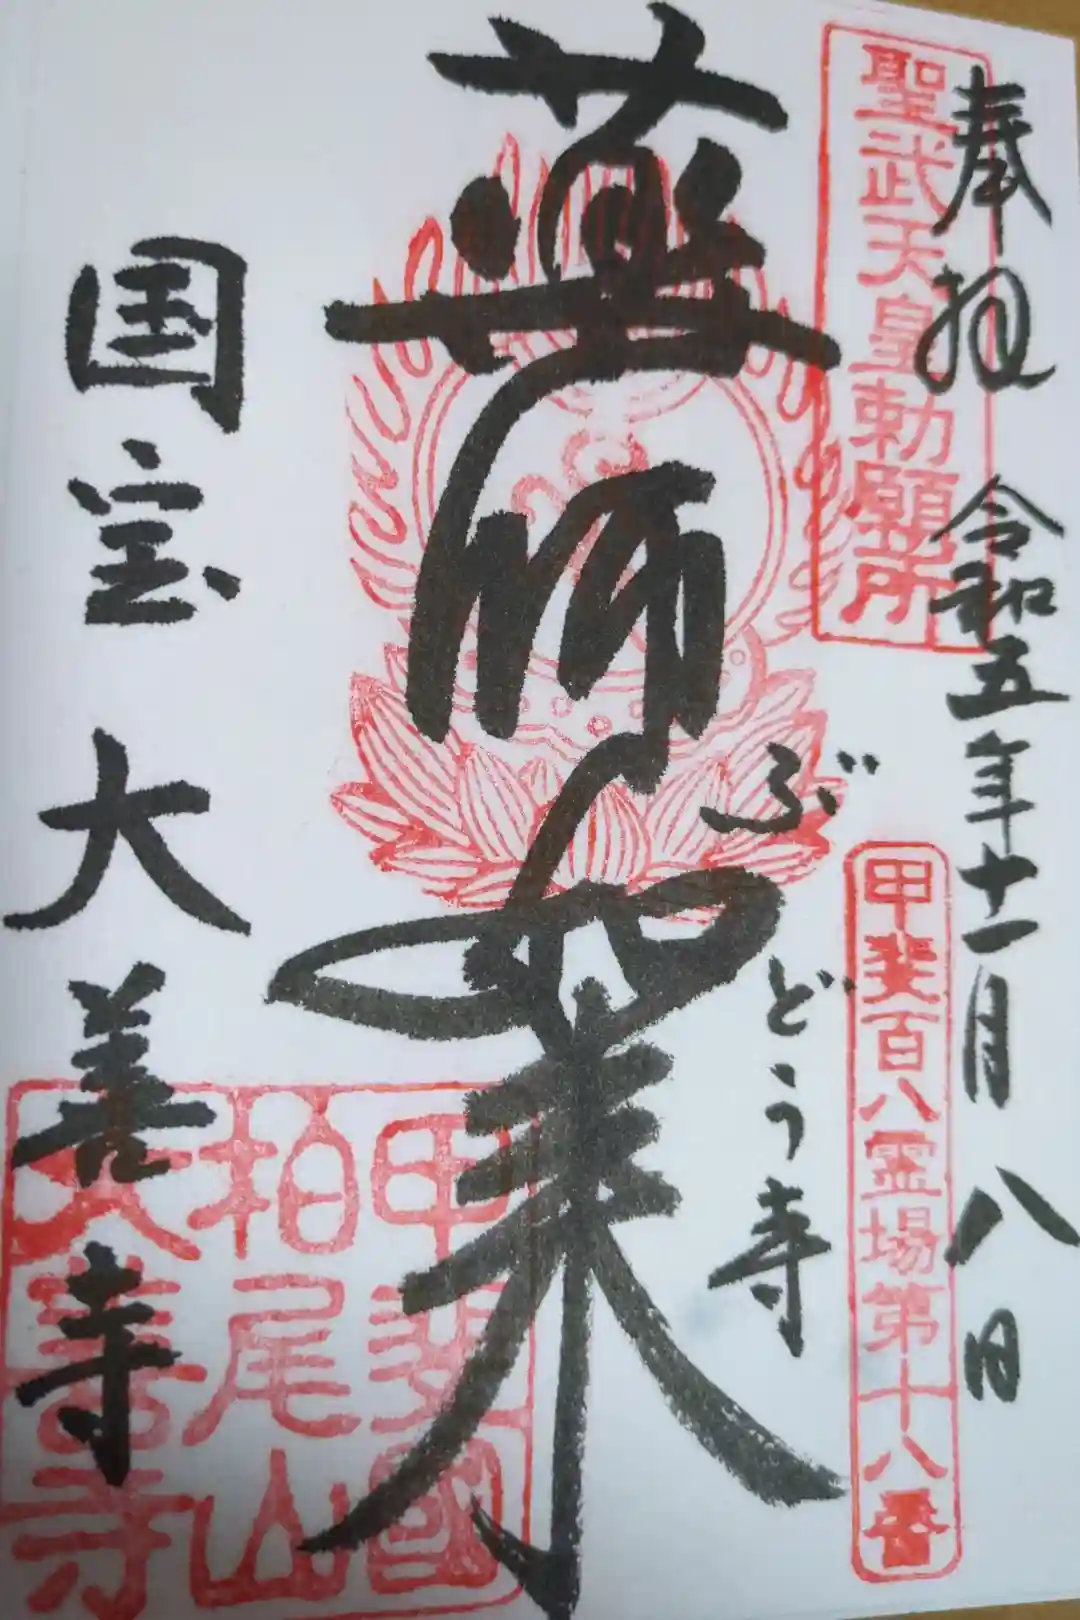 奉拝 令和五年十一月八日
聖武天皇勅願所
甲斐百八霊場第十八番
ぶどう寺
薬師如来
国宝大善寺
甲斐國
柏尾山
大善寺